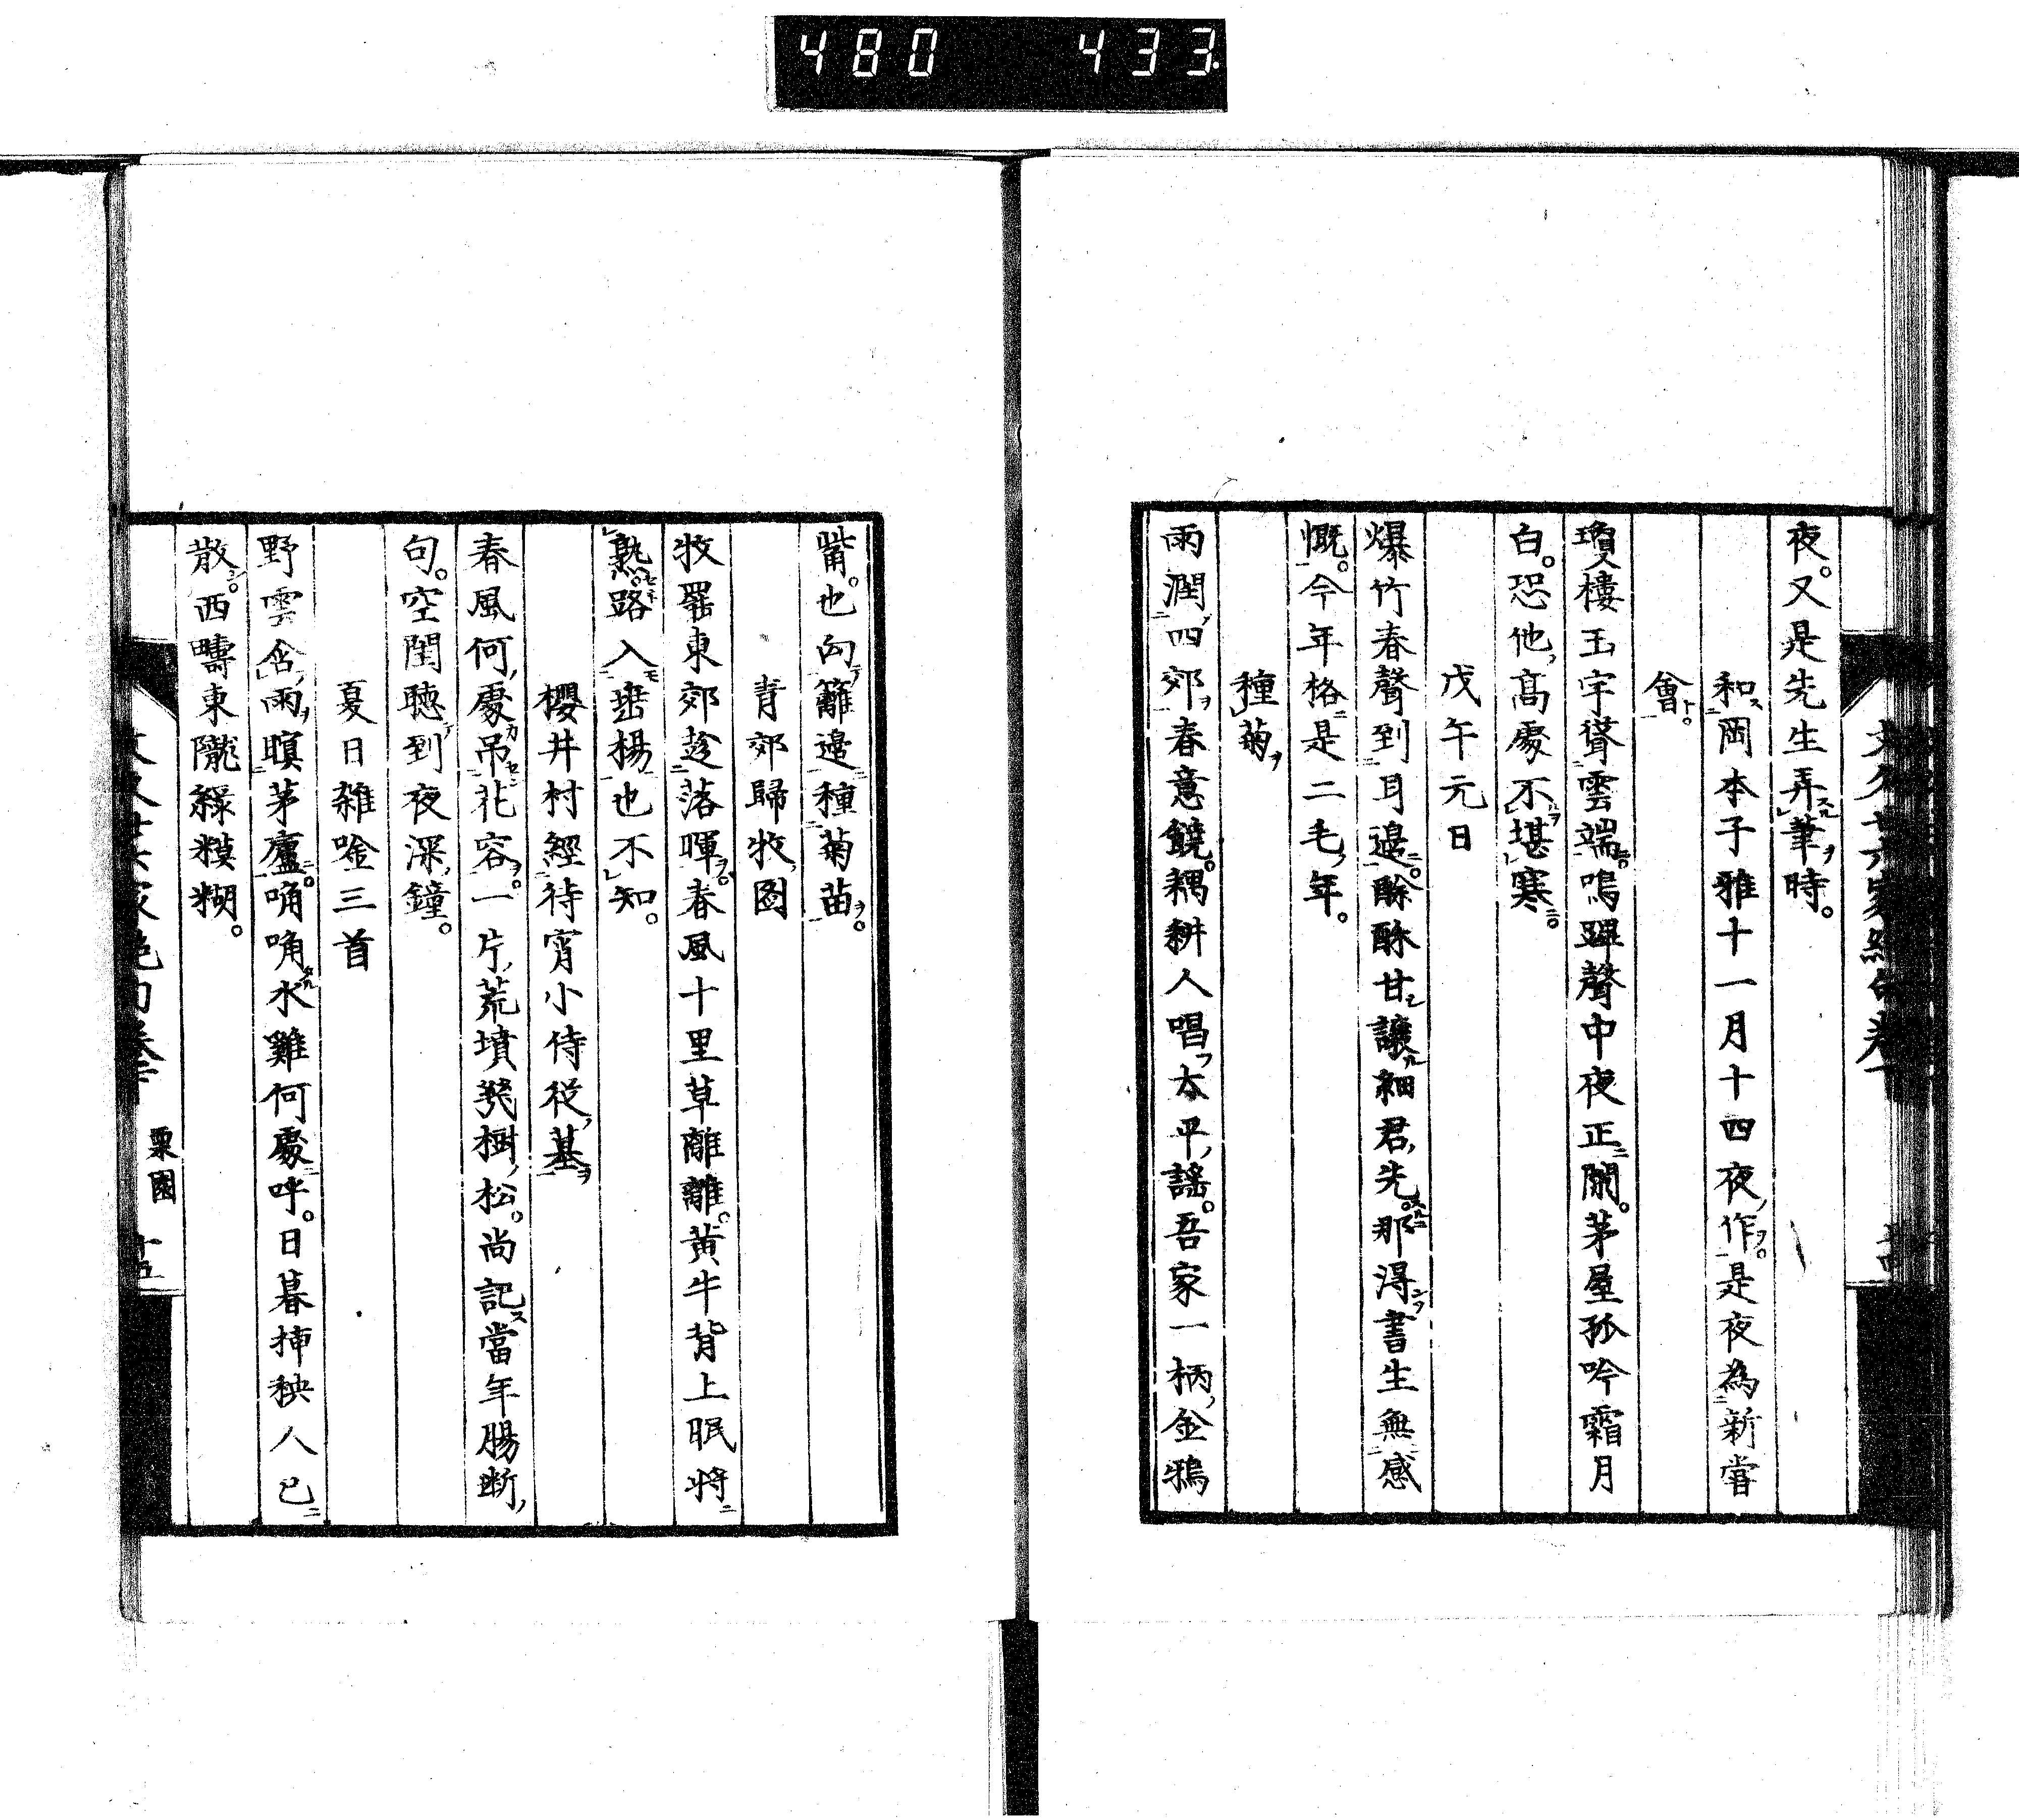 480 433
夜。又是先生弄筆時。
和岡本子雅十一月十四夜作。是夜為新嘗
會。
瓊樓玉宇聳雲端。鳴蹕聲中夜正闌。茅屋孤吟霜月
白。恐他高處不堪寒。
戊午元日
爆竹春聲到耳邊。酴酥甘讓細君先。那得書生無感
慨。今年格是二毛年。
種菊
雨潤四郊春意饒。耦耕人唱太平謠。吾家一柄金鴉
觜。也向籬邊種菊苗。
青郊歸牧圖
牧罷東郊趁落暉。春風十里草離離。黃牛背上眠將
熟。路入垂楊也不知。
櫻井村經待宵小侍從墓
春風何處吊花容。一片荒墳幾樹松。尚記當年腸斷
句。空閨聽到夜深鐘。
夏日雜唫三首
野雲含雨暝茅廬。喃喃水雞何處呼。日暮挿秧人已
散。西疇東隴綠糢糊。
栗園
十五